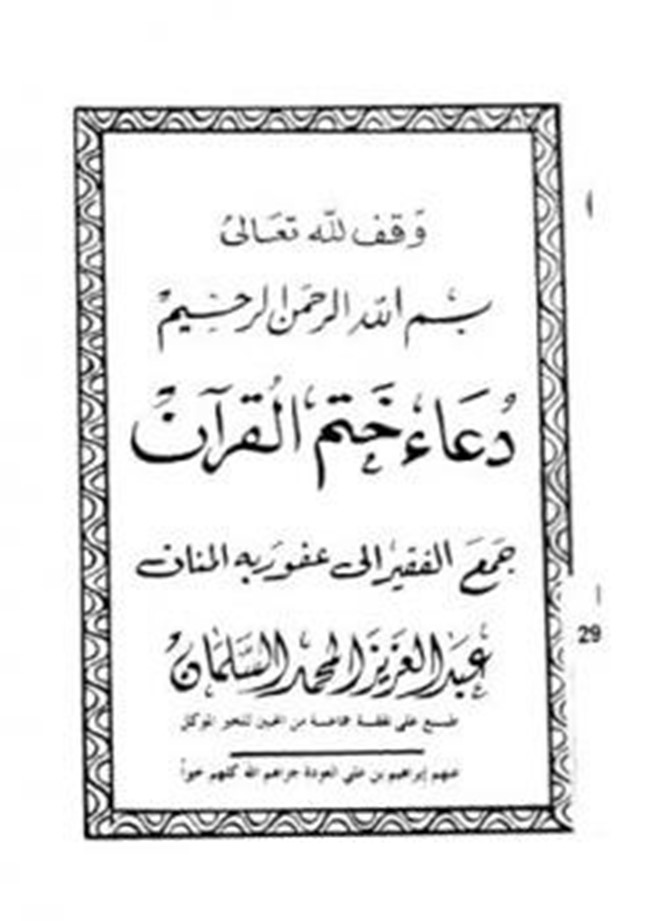 وَقف لله تعَالىٰ
بسم الله الرحمن الرحيم
دُعَاء خَتم القرآن
جمَعَ الفقير الى عفو ربه المنان
عبَد العَزيز المحمد السَّلمان
طبع على نفقة جماعة من المحبين للخير الموكل
عنهم إبراهيم بن علي العودة جزاهم الله كلهم خيراً
29